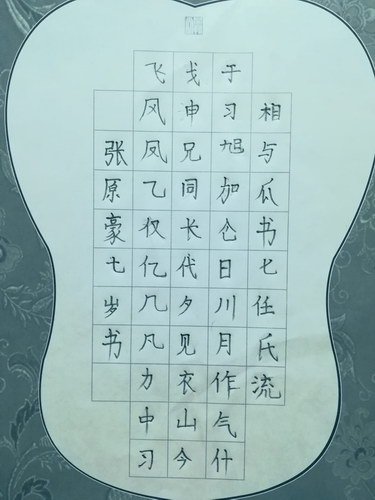 相与瓜书七任氏流
于习旭加仑日川月作气什
戈申兄同长代夕见衣山今
飞风凤乙仅亿几凡力中习
张原豪七岁书